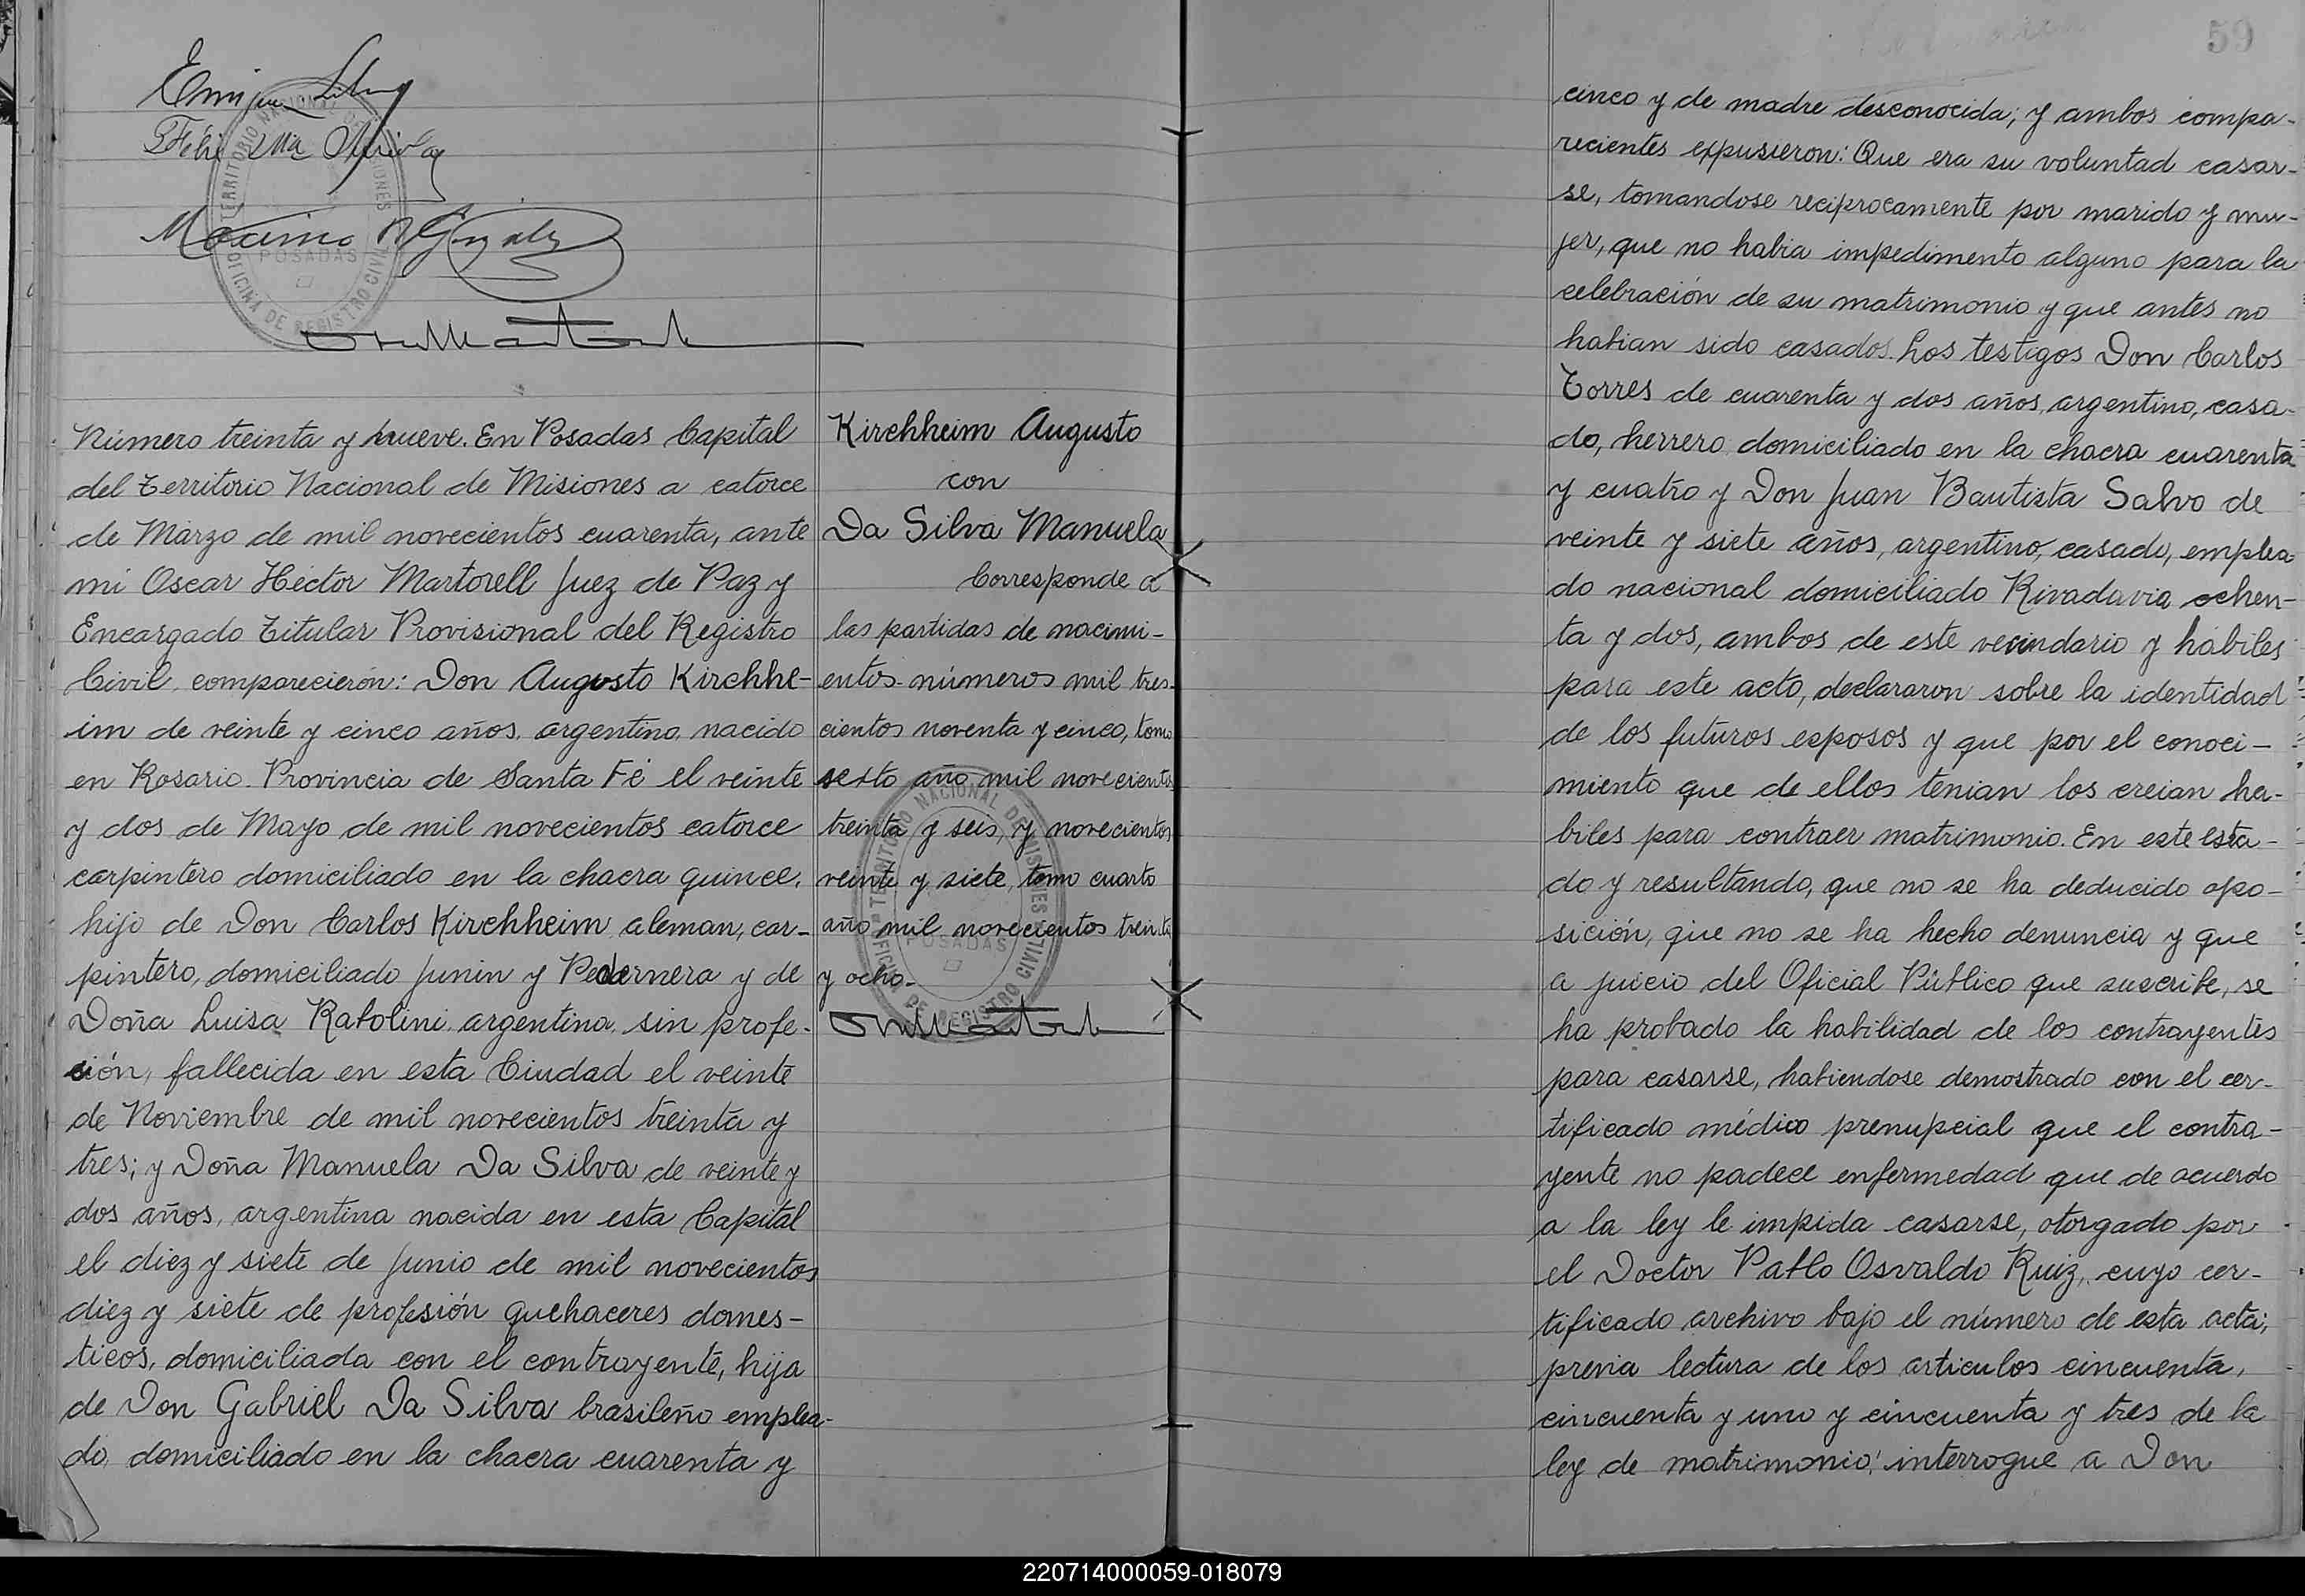 Maximo
TERRITORIO NACIONAL DE MISIONES
POSADAS
OFICINA DE REGISTRO CIVIL
Número treinta y nueve. En Posadas Capital
del Territorio Nacional de Misiones a catorce
de Marzo de mil novecientos cuarenta, ante
mi Oscar Héctor Martorell Juez de Paz y
Encargado Titular Provisional del Registro
Civil, comparecierón: Don Augusto Kirchhe-
im de veinte y cinco años, argentino, nacido
en Rosario. Provincia de Santa Fé el veinte
y dos de Mayo de mil novecientos catorce
carpintero domiciliado en la chacra quince,
hijo de Don Carlos Kirchheim, aleman, car-
pintero, domiciliado Junin y Pedernera y de
Doña Luisa Rabolini, argentina, sin profe-
sión, fallecida en esta Ciudad el veinte
de Noviembre de mil novecientos treinta y
tres; y Doña Manuela Da Silva de veinte y
dos años, argentina nacida en esta Capital
el diez y siete de Junio de mil novecientos
diez y siete de profesión quehaceres domes-
ticos, domiciliada con el contrayente, hija
de Don Gabriel Da Silva brasileño emplea-
do, domiciliado en la chacra cuarenta y
Kirchheim Augusto
con
Da Silva Manuela
Corresponde a
las partidas de nacimi-
entos números mil tres-
cientos noventa y cinco, tomo
sexto año mil novecientos
treinta y seis, y novecientos
veinte y siete, tomo cuarto
año mil novecientos treinta
y ocho.
TERRITORIO NACIONAL DE MISIONES
POSADAS
OFICINA DE REGISTRO CIVIL
59
cinco y de madre desconocida; y ambos compa-
recientes expusieron: Que era su voluntad casar-
se, tomandose reciprocamente por marido y mu-
jer, que no habia impedimento alguno para la
celebración de su matrimonio y que antes no
habian sido casados. Los testigos Don Carlos
Torres de cuarenta y dos años, argentino, casa-
do, herrero, domiciliado en la chacra cuarenta
y cuatro y Don Juan Bautista Salvo de
veinte y siete años, argentino, casado, emplea-
do nacional domiciliado Rivadavia ochen-
ta y dos, ambos de este vecindario y hábiles
para este acto, declararon sobre la identidad
de los futuros esposos y que por el conoci-
miento que de ellos tenian los creian ha-
biles para contraer matrimonio. En este esta-
do y resultando, que no se ha deducido opo-
sición, que no se ha hecho denuncia y que
a juicio del Oficial Público que suscribe, se
ha probado la habilidad de los contrayentes
para casarse, habiendose demostrado con el cer-
tificado médico prenupcial que el contra-
yente no padece enfermedad que de acuerdo
a la ley le impida casarse, otorgado por
el Doctor Pablo Osvaldo Ruiz, cuyo cer-
tificado archivo bajo el número de esta acta;
previa lectura de los articulos cincuenta,
cincuenta y uno y cincuenta y tres de la
ley de matrimonio, interrogue a Don
220714000059-018079